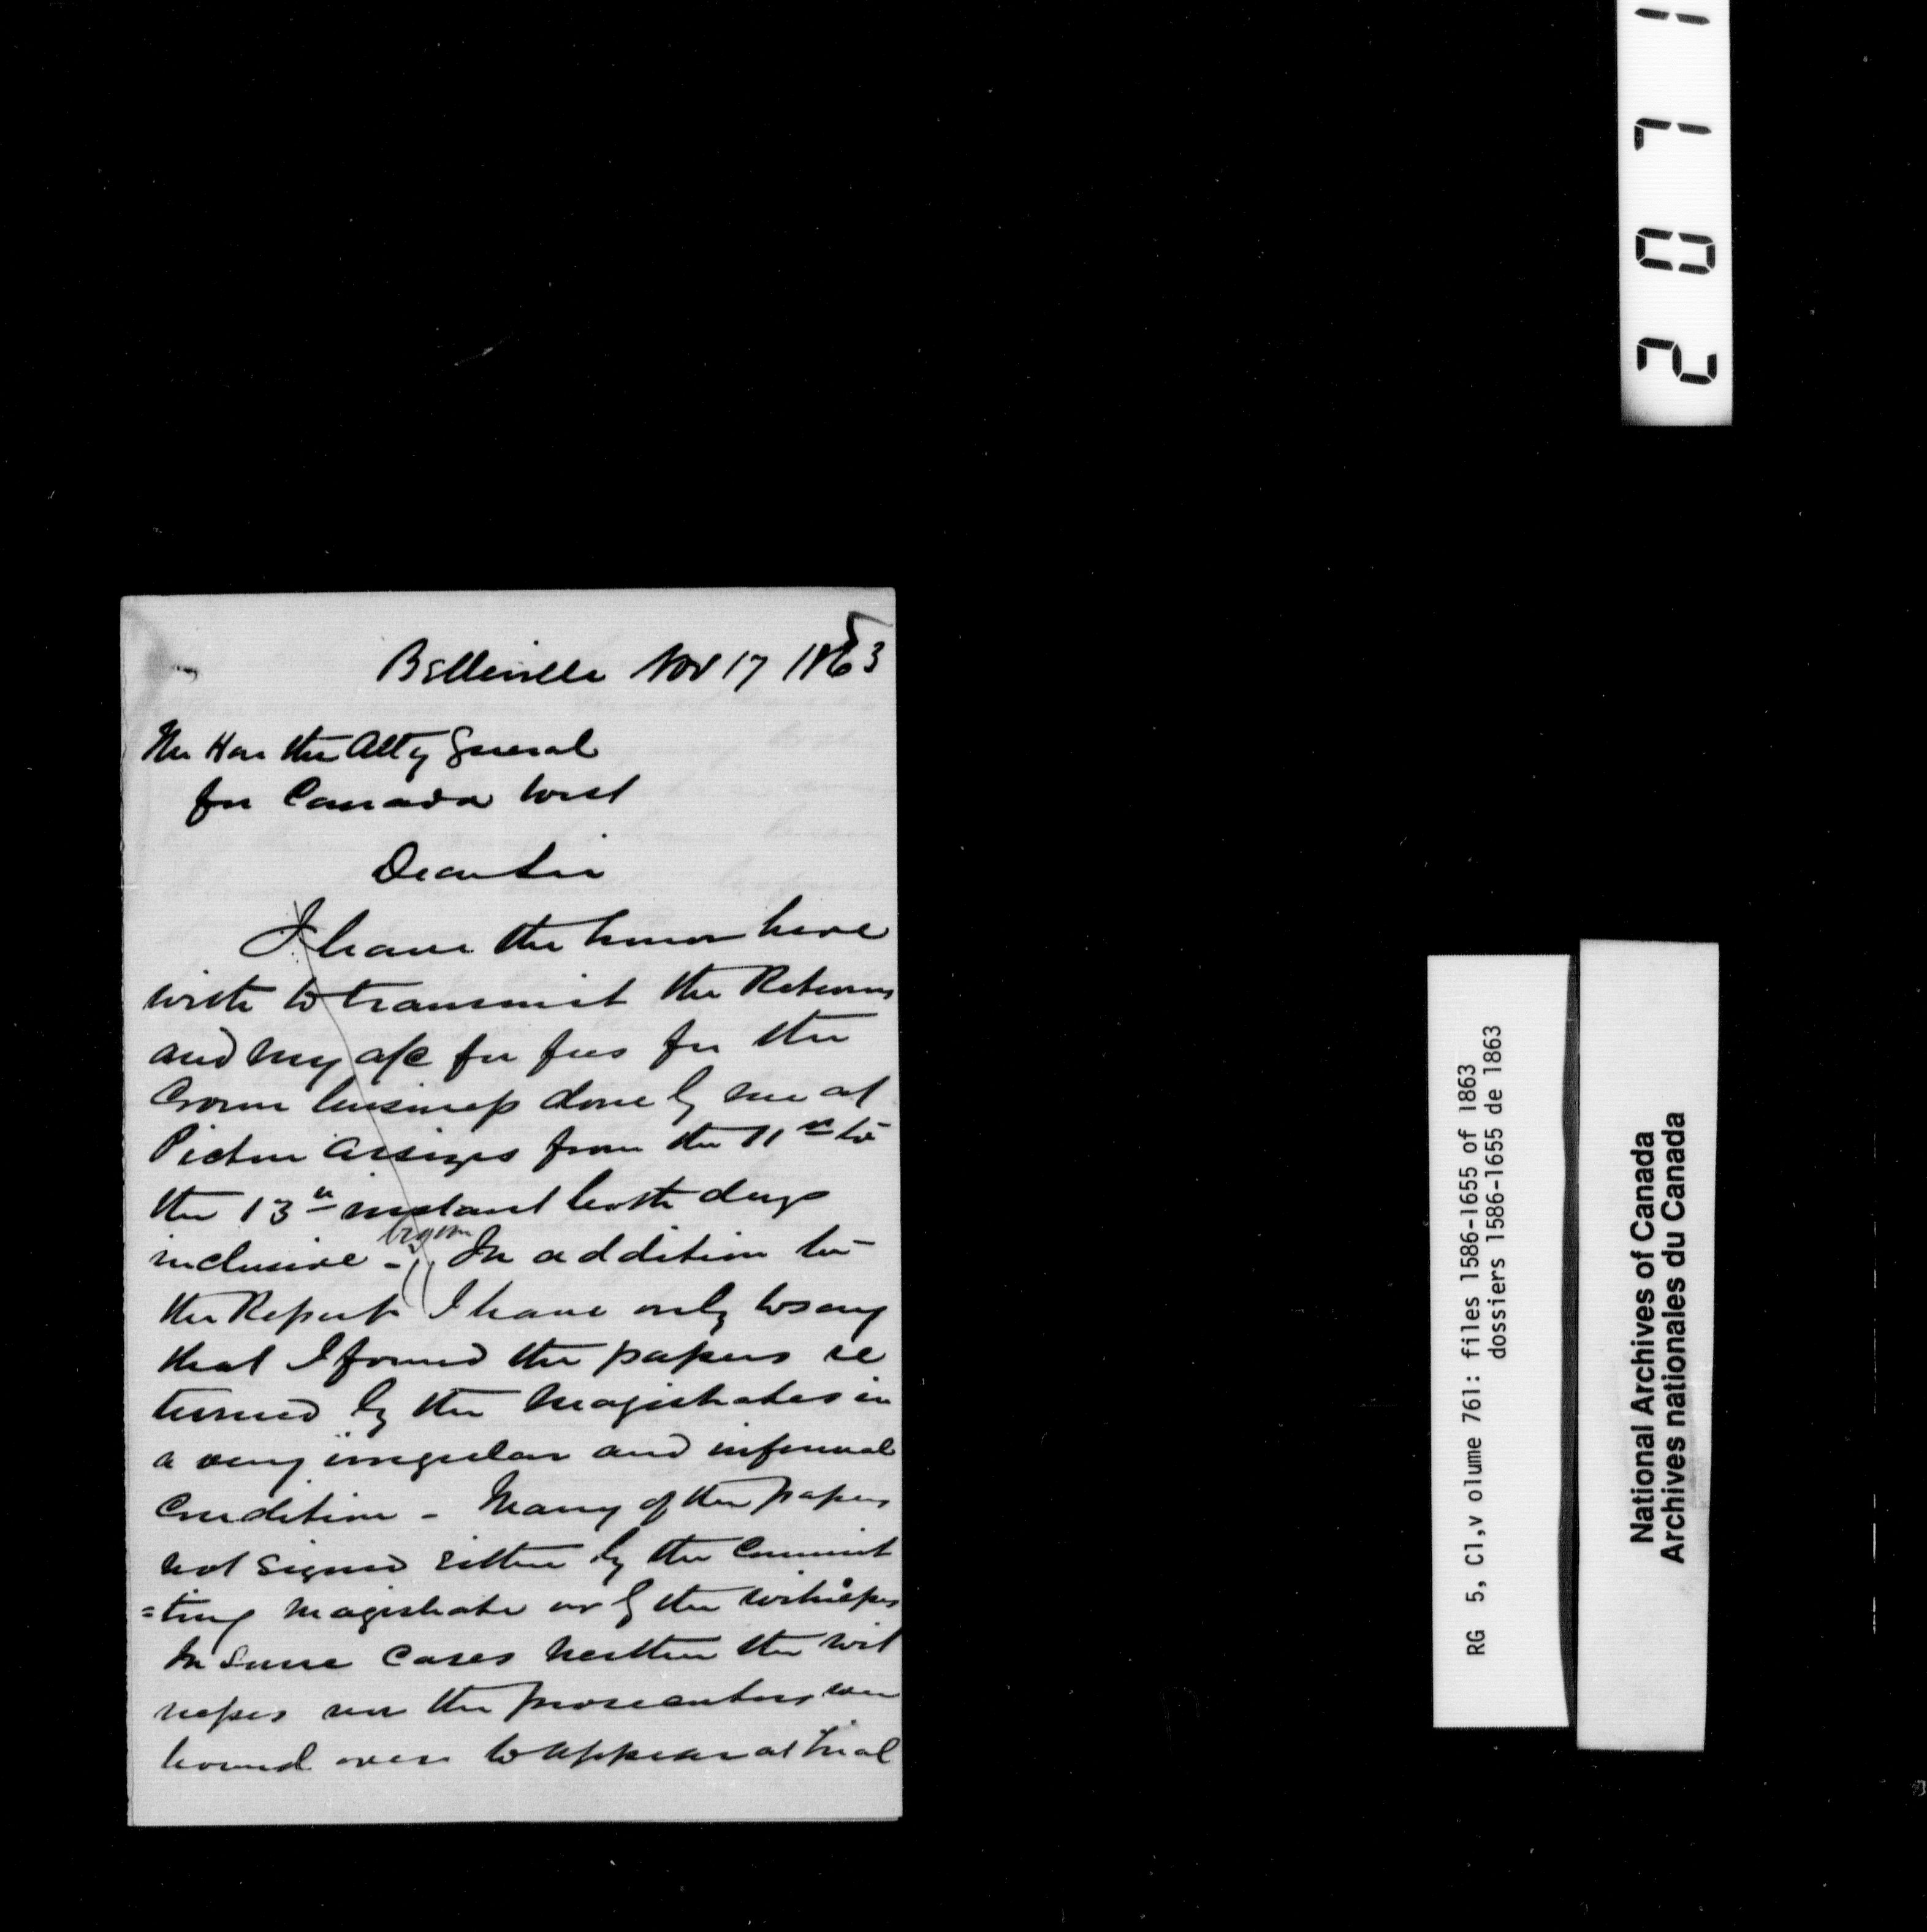 Belleville Nov 17 1863
The Hon the Atty General
for Canada West
Dear Sir
I have the honor here
with to transmit the Returns
and my a/c for fees for the
Crown business done by me at
Picton Assizes from the 11th to
the 13th instant both days
inclusive - In addition to
the Report I have only to say
that I found the papers re
turned by the Magistrates in
a very irregular and informal
Condition - Many of the papers
not signed either by the Commit
=ting Magistrate or by the witnesses
In some Cases neither the wit
nesses nor the prosecutors were
bound over to appear at trial
2071
RG 5, Cl,v olume 761: files 1586-1655 of 1863
dossiers 1586-1655 de 1863
National Archives of Canada
Archives nationales du Canada